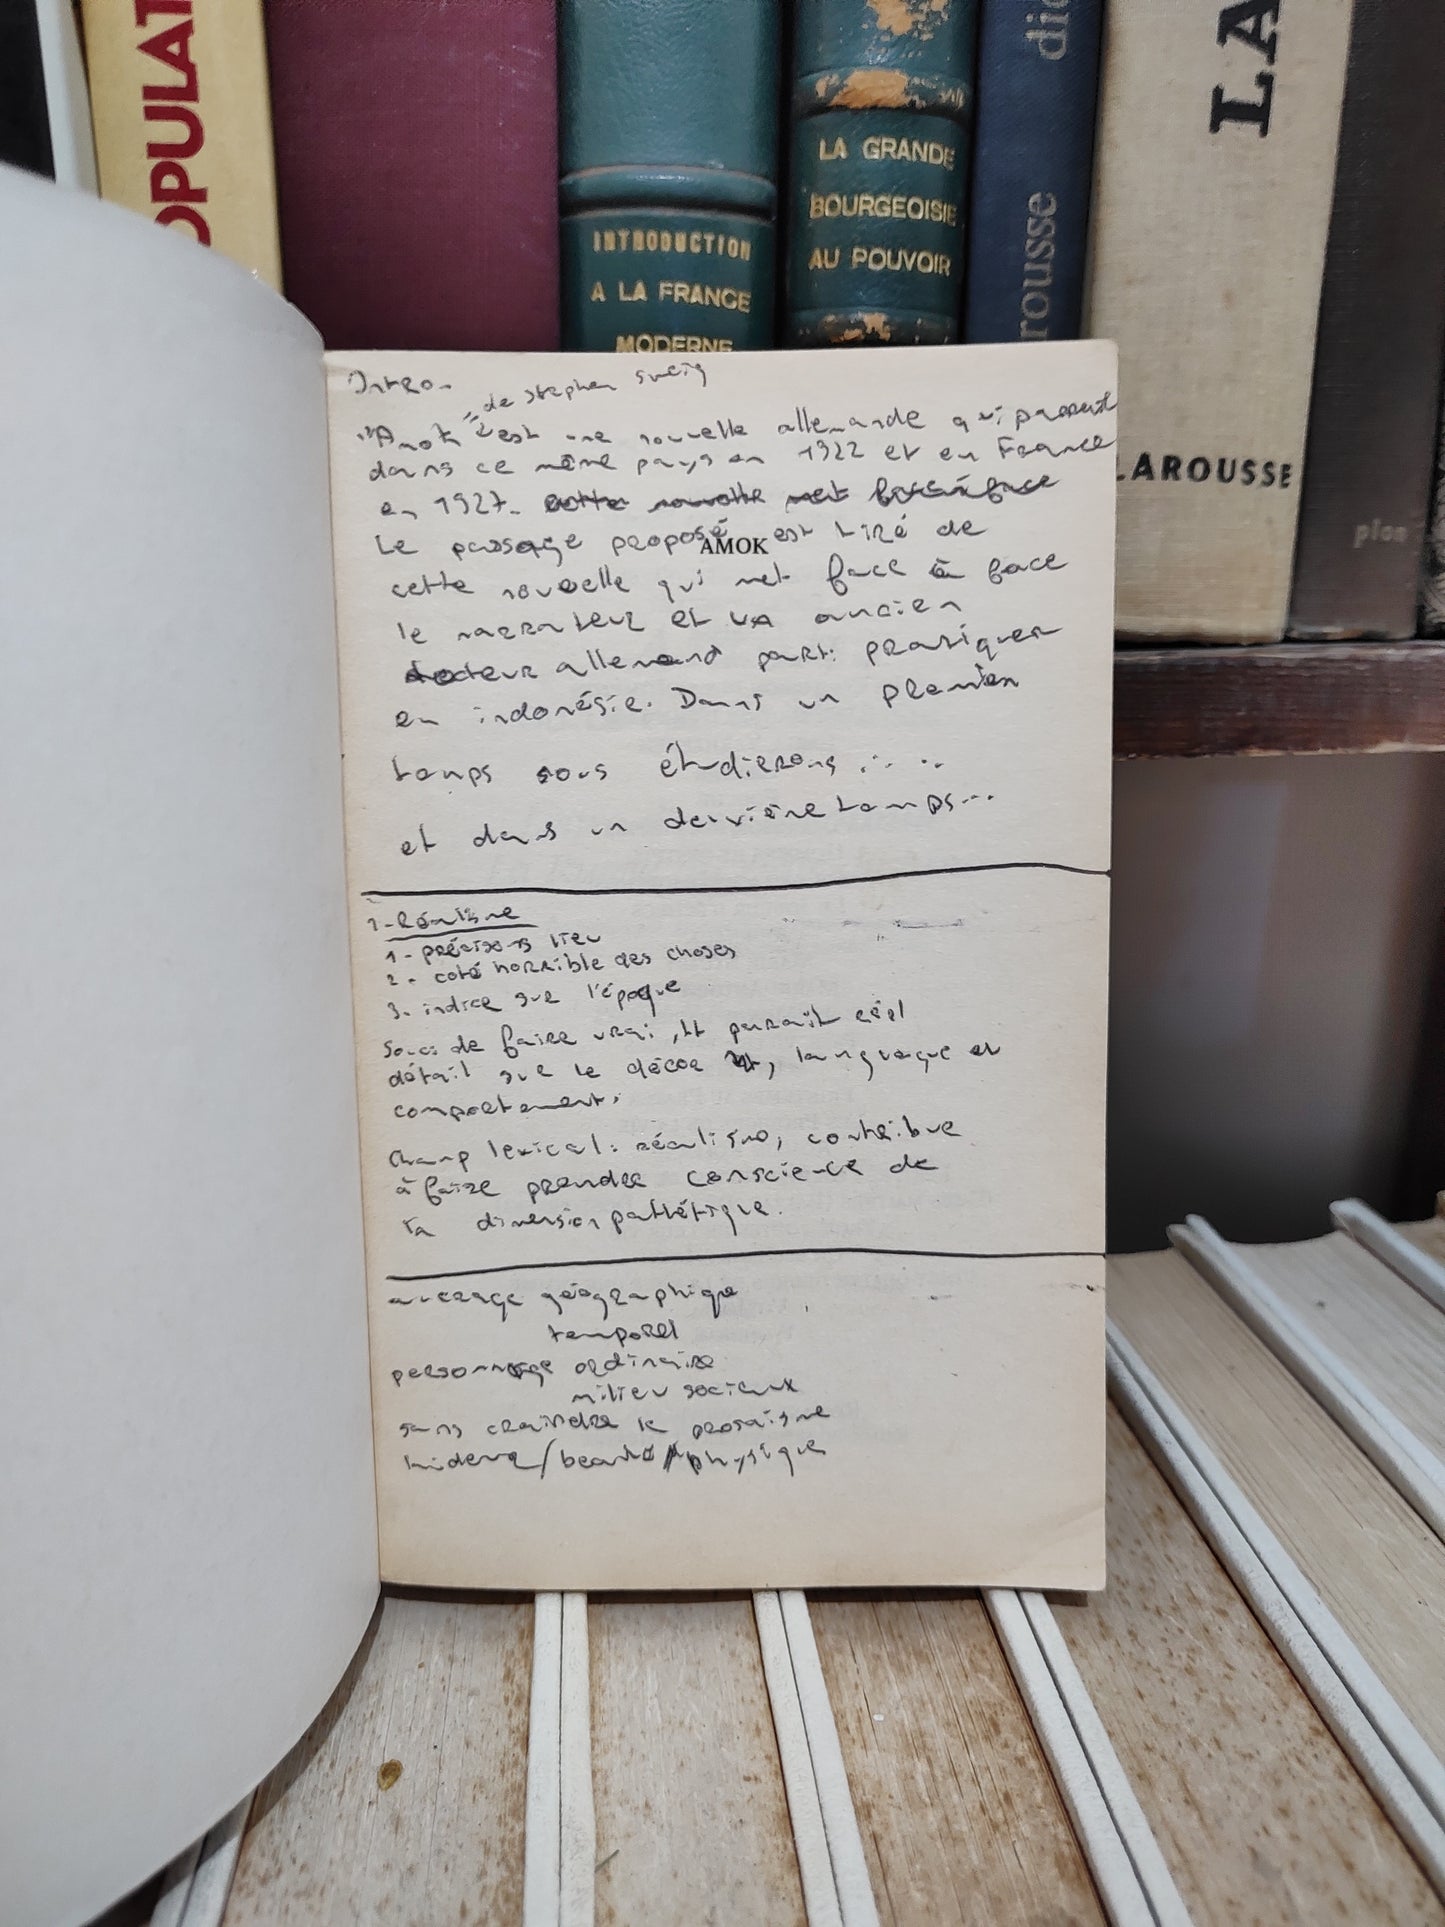 OPULAT
INTRODUCTION
A LA FRANCE
MODERNE
LA GRANDE
BOURGEOISIE
AU POUVOIR
dic
rousse
LA
LAROUSSE
plon
Intro.
de Stephen Sveig
"Amok" est une nouvelle allemande qui parait
dans ce même pays en 1922 et en France
en 1927. cette nouvelle met face à face
Le passage proposé est tiré de
AMOK
cette nouvelle qui met face à face
le narrateur et un ancien
docteur allemand parti pratiquer
en indonésie. Dans un premier
temps nous étudierons . . . .
et dans un deuxième temps...
1-Réalisme
1- précisions lieu
2- coté horrible des choses
3. indice sur l'époque
Souci de faire vrai, parait réel
détail sur le décor, langage et
comportement.
Champ lexical: réalisme, contribue
à faire prendre conscience de
la dimension pathétique.
ancrage géographique
temporel
personnage ordinaire
milieu sociaux
sans craindre le prosaisme
hideur/beauté physique